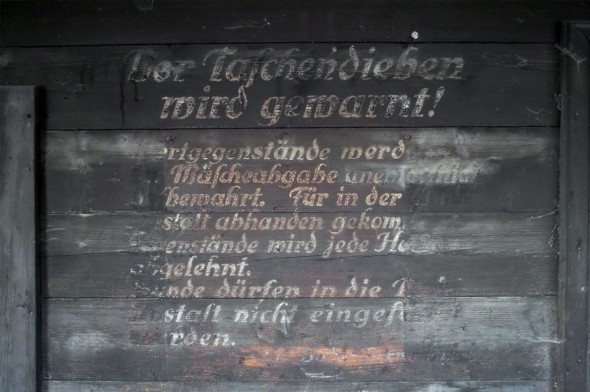 Vor Taschendieben
wird gewarnt!
ertgegenstände werd
Wäscheabgabe unentgeltlich
fbewahrt. Für in der
stalt abhanden gekom
genstände wird jede Ha
abgelehnt.
Hunde dürfen in die
nstalt nicht eingef
erden.